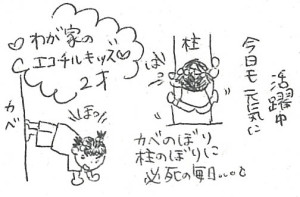 わが家の
エコチルキッズ
2才
カベ
ぽっ
柱
ぱっ
今日モ元気に
活躍中
カベのぼり
柱のぼりに
必死の毎日…。